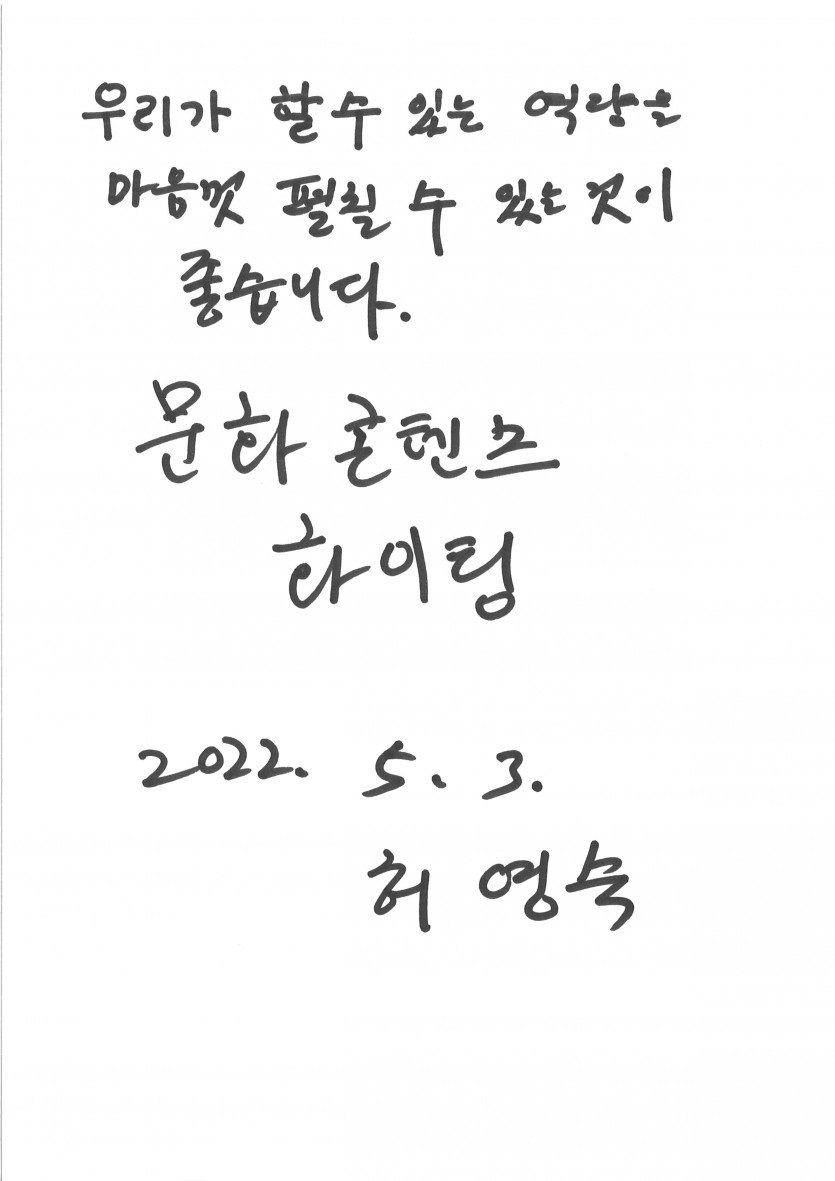 우리가 할 수 있는 역량을
마음껏 펼칠 수 있는 것이
좋습니다.
문화 콘텐츠
화이팅
2022. 5. 3.
허 영숙